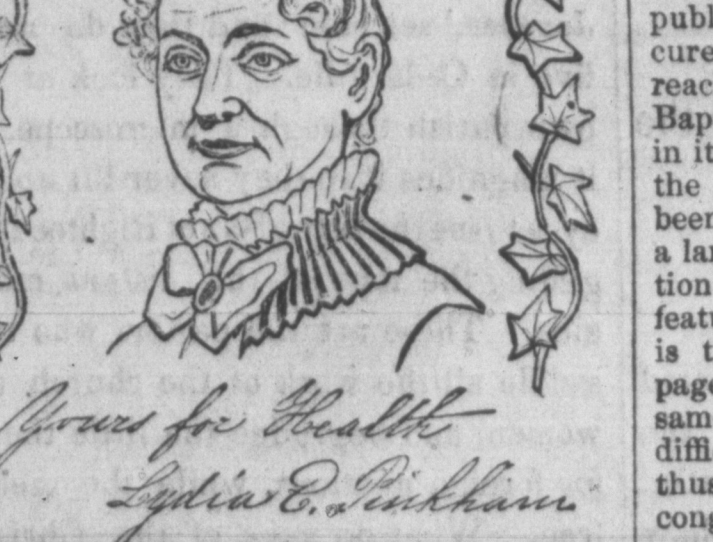 Yours for Health
Lydia E. Pinkham
publ
cure
reac
Bap
in it
the
been
a lar
tion
featu
is t
page
sam
diffi
thus
cong